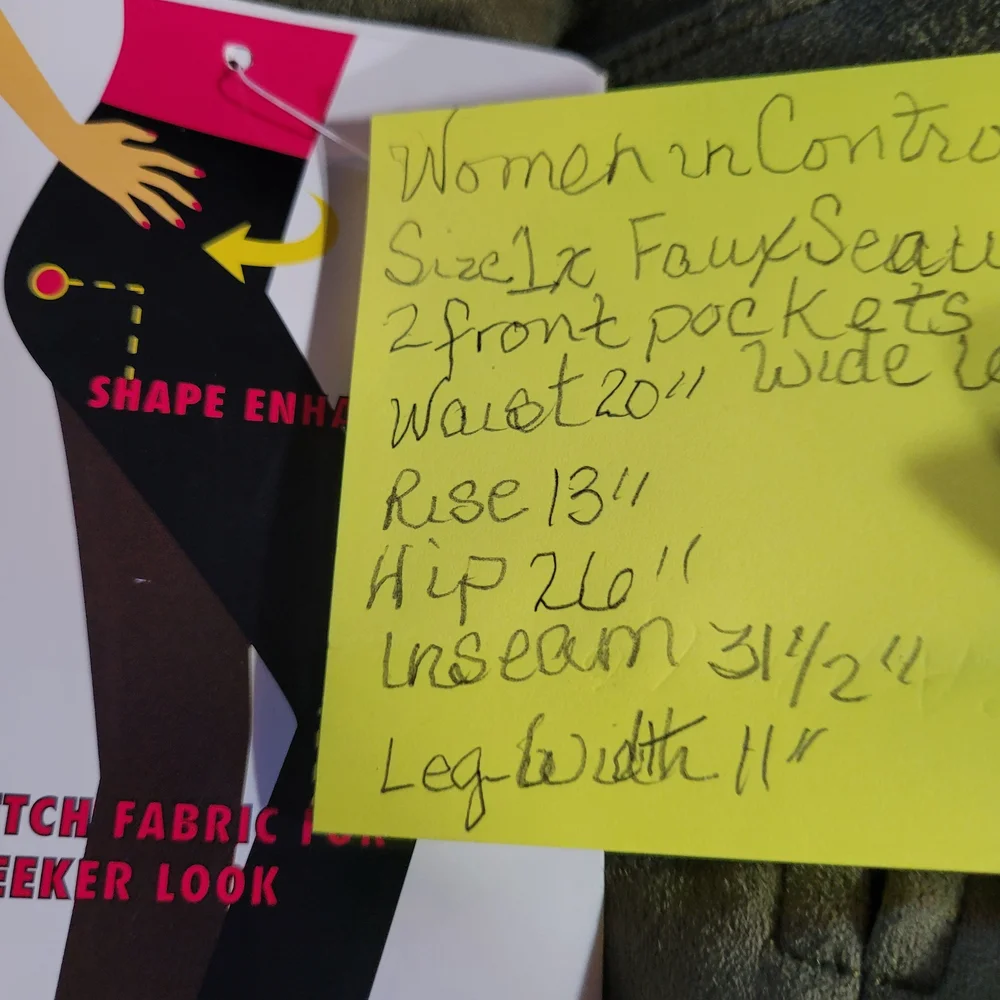 Women in Contro
Size 1x Faux Seau
2 front pockets
Waist 20" Wide le
Rise 13"
Hip 26"
Inseam 31 1/2"
Leg Width 11"
SHAPE ENHA
TCH FABRIC FOR
EEKER LOOK